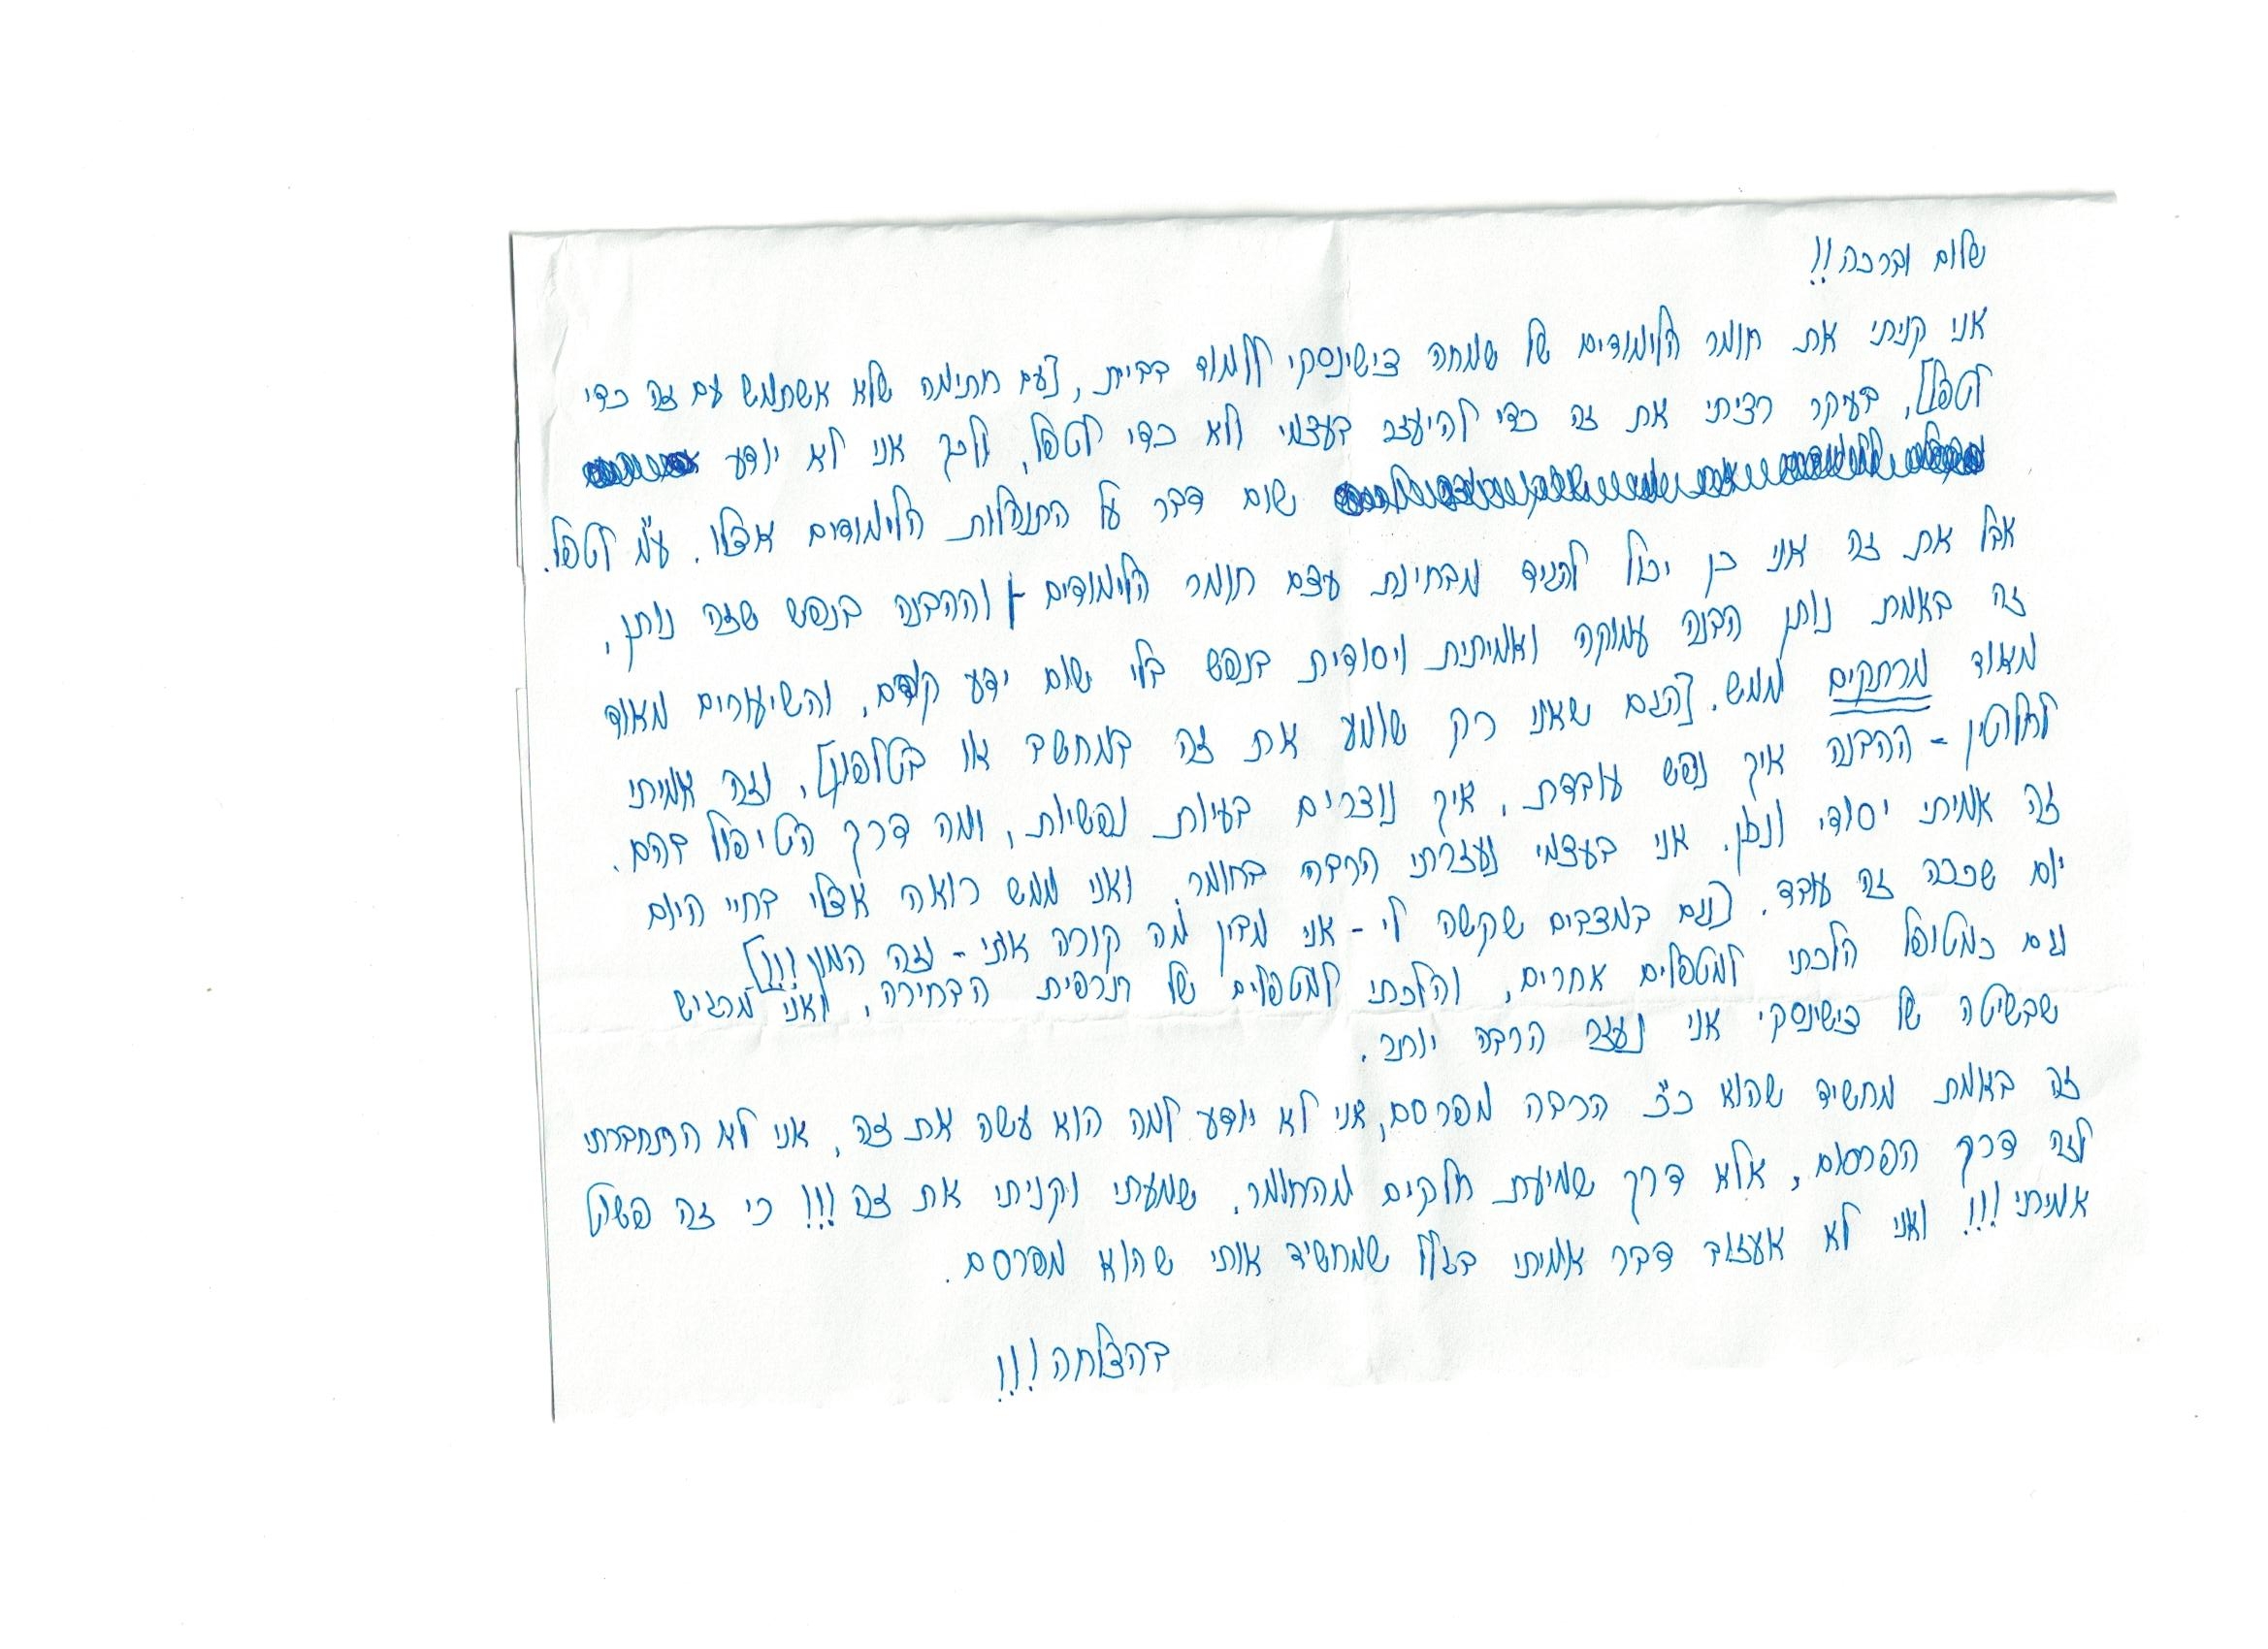 שלום וברכה!!
אני קניתי את חומר הלימודים של שמחה צישינסקי ללמוד בבית, [עם חתימה שלא אשתמש עם זה כדי
לטפל], בעיקר רציתי את זה כדי להיעזר בעצמי ולא כדי לטפל, ולכך אני לא יודע
שום דבר על התנהלות הלימודים אצלו. ע"מ לטפל.
אבל את זה אני כן יכול להגיד מבחינת עצם חומר הלימודים וההבנה בנפש שזה נותן,
זה באמת נותן הבנה עמוקה ואמיתית ויסודית בנפש בלי שום ידע קודם, והשיעורים מאוד
מאוד מרתקים ממש. [הגם שאני רק שומע את זה במחשב או בטלפון], וזה אמיתי
לחלוטין - ההבנה איך נפש עובדת, איך נוצרים בעיות נפשיות, ומה דרך הטיפול בהם.
זה אמיתי יסודי ונכון. אני בעצמי נעזרתי הרבה בחומר, ואני ממש רואה אצלי בחיי היום
יום שככה זה עובד. [גם במצבים שקשה לי - אני מבין מה קורה אתי - וזה המון!!!]
וגם כמטופל הלכתי למטפלים אחרים, והלכתי למטפלים של תרפית הבחירה, ואני מרגיש
שבשיטה של צישינסקי אני נעזר הרבה יותר.
זה באמת מחשיד שהוא כ"כ הרבה מפרסם, אני לא יודע למה הוא עשה את זה, אני לא התחברתי
לזה דרך הפרסום, אלא דרך שמיעת חלקים מהחומר. שמעתי וקניתי את זה!!! כי זה פשוט
אמיתי!!! ואני לא אעזוב דבר אמיתי בגלל שמחשיד אותי שהוא מפרסם.
בהצלחה!!!